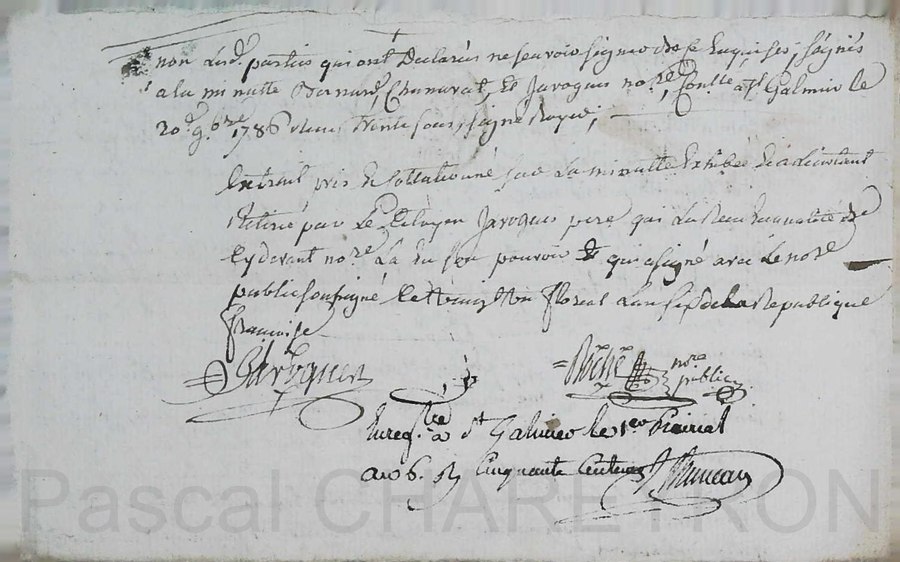 non Lesd. parties qui ont Declarés ne scavoir signer de ce Enquises, signés
a la minutte Bernard, Chanavat, et Javogues nore, Conlle a St Galmier le
20e 9bre 1786 trente sous, signé
Extrait pris et collationné sur La minutte Exhibée et a l'instant
Retirée par Le Citoyen Javogues pere qui La
cy devant nore La en son pouvoir et qui a signé avec Le nore
public soussigné Le vingt floreal L'an six de La Republique
francaise
Javogues
Roche nore
public
Enregtré a St Galmier le 1er Prairial
an 6. R. Cinquante Centimes
Pascal CHAREYRON